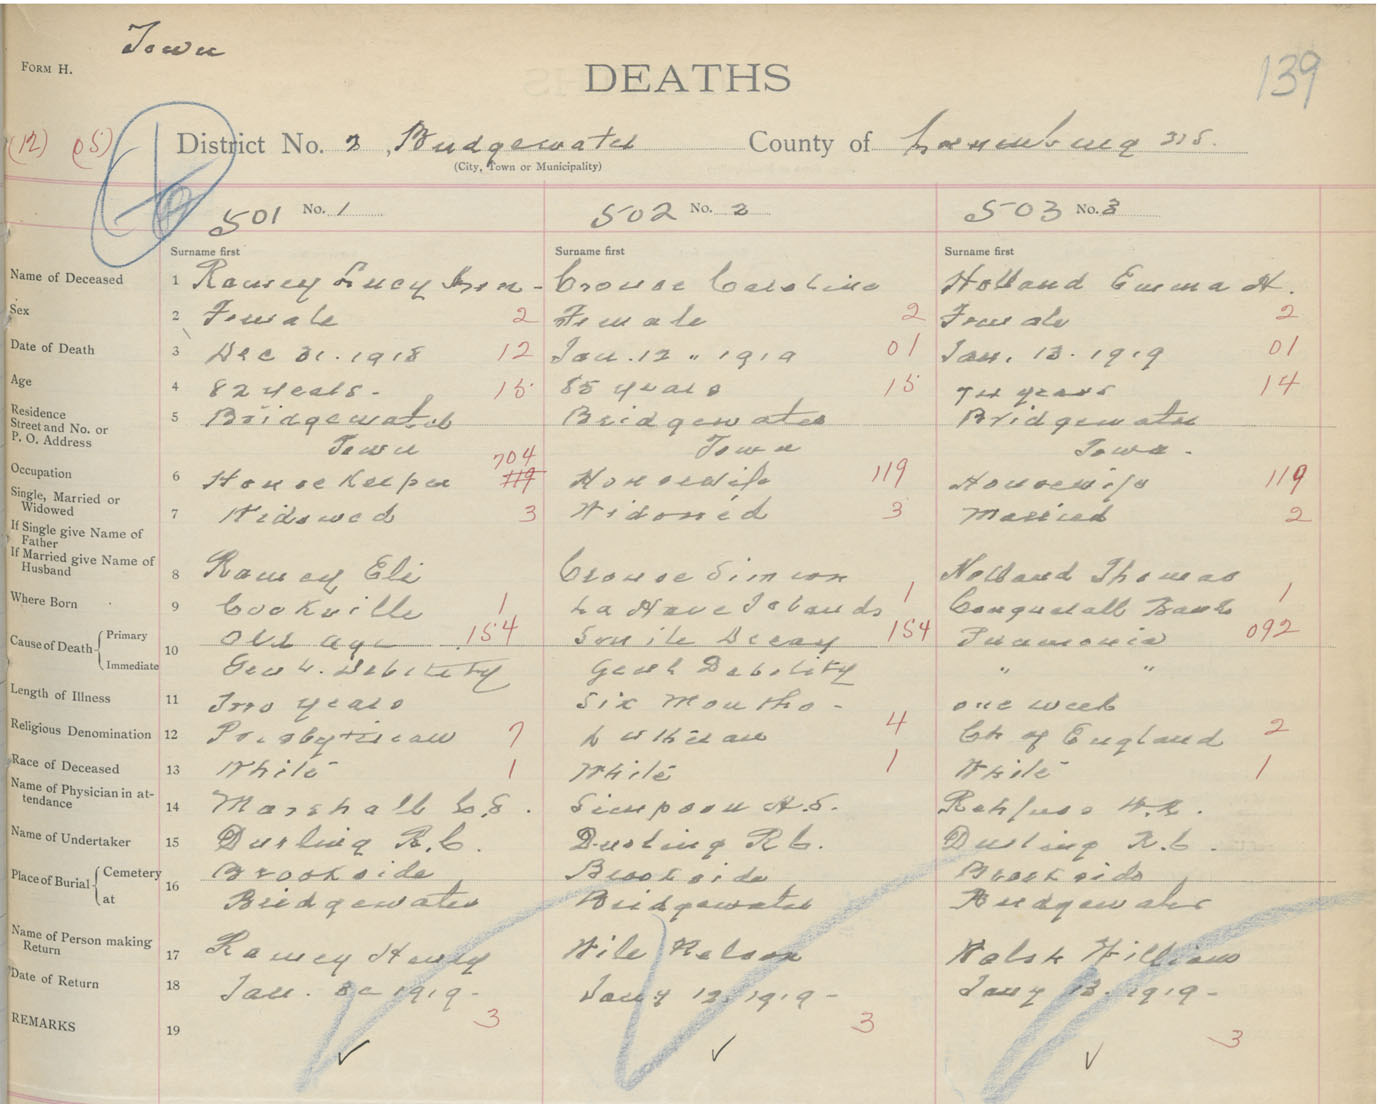 Town
FORM H.
DEATHS
139
(12) (05)
District No. 2, Bridgewater County of Lunenburg
(City, Town or Municipality)
501 No. 1 502 No. 2 503 No. 3
Surname first Surname first Surname first
Name of Deceased 1 Ramey Lucy Crouse Caroline Holland Emma H.
Sex 2 Female 2 Female 2 Female 2
Date of Death 3 Dec 31. 1918 12 Jan. 12 " 1919 01 Jan. 13. 1919 01
Age 4 82 years. 15 85 years 15 74 years 14
Residence
Street and No. or
P. O. Address 5 Bridgewater Bridgewater Bridgewater
Town 704 Town Town
Occupation 6 Housekeeper 119 Housewife 119 Housewife 119
Single, Married or
Widowed 7 Widowed 3 Widowed 3 Married 2
If Single give Name of
Father
If Married give Name of
Husband 8 Ramey Eli Crouse Simeon Holland Thomas
Where Born 9 Cookville 1 La Have Islands 1 Conquerall Bank 1
Cause of Death Primary 10 Old age 154 Senile Decay 154 Pnumonia 092
Immediate Gen'l. Debility Gen'l Debility " "
Length of Illness 11 Two years Six Months - one week
Religious Denomination 12 Presbyterian 7 Lutheran 4 Ch of England 2
Race of Deceased 13 White 1 White 1 White 1
Name of Physician in at-
tendance 14 Marshall C.S. Simpson H.S. Rehfuss W.N.
Name of Undertaker 15 Durling R.C. Durling R C. Durling R.C.
Place of Burial Cemetery 16 Brookside Brookside Brookside
at Bridgewater Bridgewater Bridgewater
Name of Person making
Return 17 Ramey Henry Wile Nelson Walsh William
Date of Return 18 Jan. 1919- Jany 12. 1919- Jany 13. 1919-
REMARKS 19 3 3 3